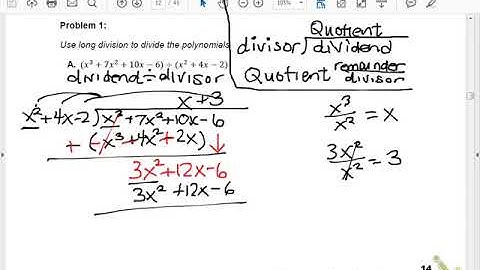 12 / 41
105%
Problem 1:
Use long division to divide the polynomials
A. (x³ + 7x² + 10x − 6) ÷ (x² + 4x − 2)
dividend ÷ divisor
Quotient
divisor) dividend
Quotient remainder
divisor
x + 3
x² + 4x − 2) x³ + 7x² + 10x − 6
+ (−x³ + 4x² + 2x) ↓
3x² + 12x − 6
3x² + 12x − 6
x³/x² = x
3x²/x² = 3
14